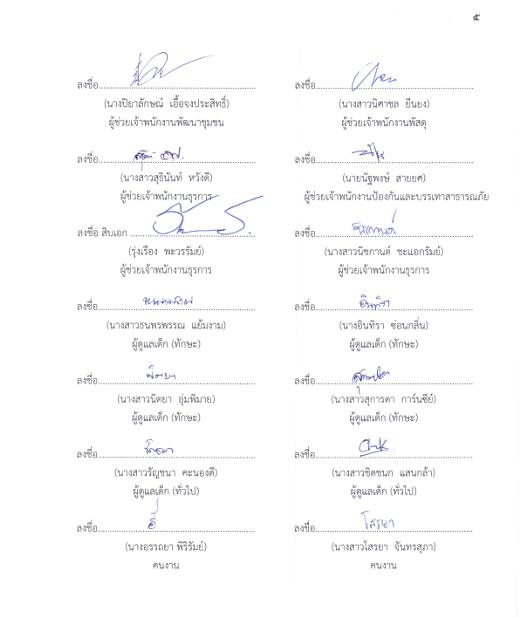 ๕
ลงชื่อ
(นางปิยาลักษณ์ เอื้อจงประสิทธิ์)
ผู้ช่วยเจ้าพนักงานพัฒนาชุมชน
ลงชื่อ
(นางสาวนิศาชล ยืนยง)
ผู้ช่วยเจ้าพนักงานพัสดุ
ลงชื่อ
(นางสาวสุธินันท์ หวังดี)
ผู้ช่วยเจ้าพนักงานธุรการ
ลงชื่อ
(นายนัฐพงษ์ สายยศ)
ผู้ช่วยเจ้าพนักงานป้องกันและบรรเทาสาธารณภัย
ลงชื่อ สิบเอก
(รุ่งเรือง พะวรรัมย์)
ผู้ช่วยเจ้าพนักงานธุรการ
ลงชื่อ
(นางสาวนิชกานต์ ชะแอกรัมย์)
ผู้ช่วยเจ้าพนักงานธุรการ
ลงชื่อ
(นางสาวธนพรพรรณ แย้มงาม)
ผู้ดูแลเด็ก (ทักษะ)
ลงชื่อ อินทิรา
(นางอินทิรา ซ่อนกลิ่น)
ผู้ดูแลเด็ก (ทักษะ)
ลงชื่อ
(นางสาวนิตยา อุ่มพิมาย)
ผู้ดูแลเด็ก (ทักษะ)
ลงชื่อ
(นางสาวสุการดา การ์นซีย์)
ผู้ดูแลเด็ก (ทักษะ)
ลงชื่อ
(นางสาวรัญชนา คะนองดี)
ผู้ดูแลเด็ก (ทั่วไป)
ลงชื่อ
(นางสาวชิดชนก แสนกล้า)
ผู้ดูแลเด็ก (ทั่วไป)
ลงชื่อ
(นางอรรถยา พิริรัมย์)
คนงาน
ลงชื่อ โสรยา
(นางสาวโสรยา จันทรสุภา)
คนงาน